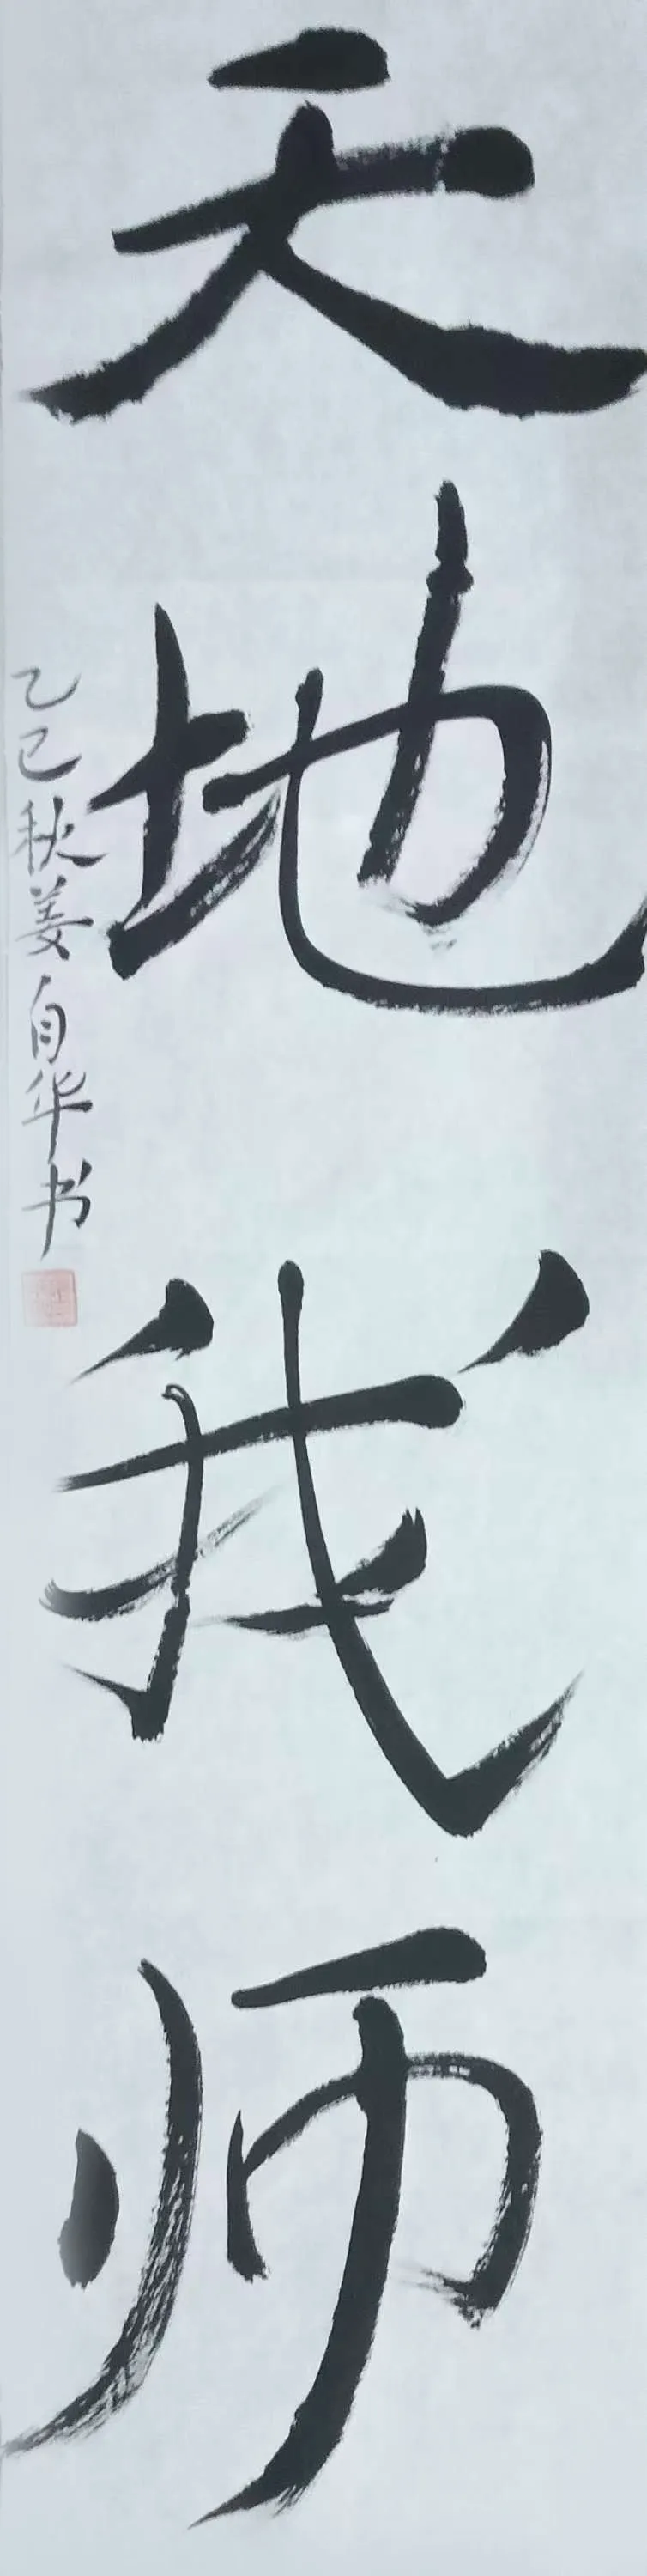 天地我师
乙巳秋姜自华书